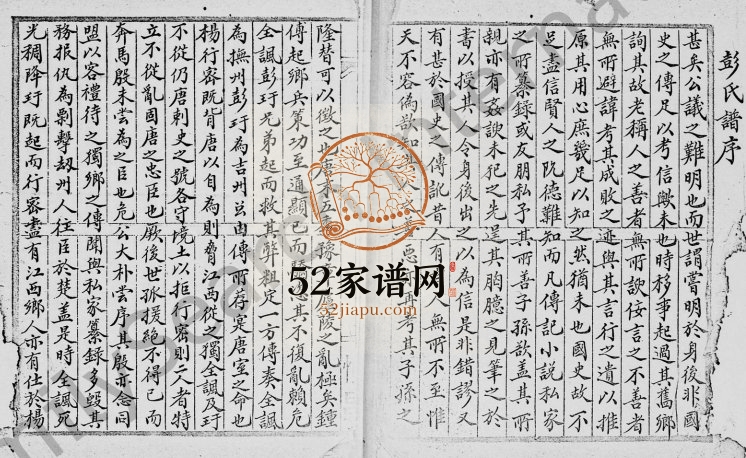 彭氏譜序
甚矣公議之難明也而世謂嘗明於身後非國
史之傳足以考信歟未也時移事起過其舊鄉
詢其故老稱人之善者無所諛佞言之不善者
無所避諱考其成敗之迹與其言行之遺以推
原其用心庶幾足以知之然猶未也國史故不
足盡信賢人之阨德難知而凡傳記小說私家
之所纂錄或友朋私予其所善子孫欲蓋其所
親亦有姦諛未犯之先逞其胸臆之見筆之於
書以授其人令身後出之以為信是非錯謬又
有甚於國史之傳訛昔人有 無所不至惟
天不容偽欲知其人 惡 再考其子孫之
隆替可以徵之 唐末五 豫 廬陵之亂極矣鍾
傳起鄉兵策功至通顯已而 其不復亂賴危
全諷彭玕兄弟起而救其弊粗定一方傳奏全諷
為撫州彭玕為吉州皆由傳所存定唐室之命也
楊行密既背唐以自為則脅江西從之獨全諷及玕
不從仍唐刺史之號各守境土以拒行密則二人者特
立不從亂固唐之忠臣也厥後世孤援絕不得已而
奔馬殷未嘗為之臣也危公大朴嘗序其殷亦念同
盟以客禮待之獨鄉之傳聞與私家纂錄多毀其
務報仇為剽擊劫州人往臣於楚蓋是時全諷死
光稠降玕既起而行密盡有江西鄉人亦有仕於楊
52家谱网
52jiapu.com